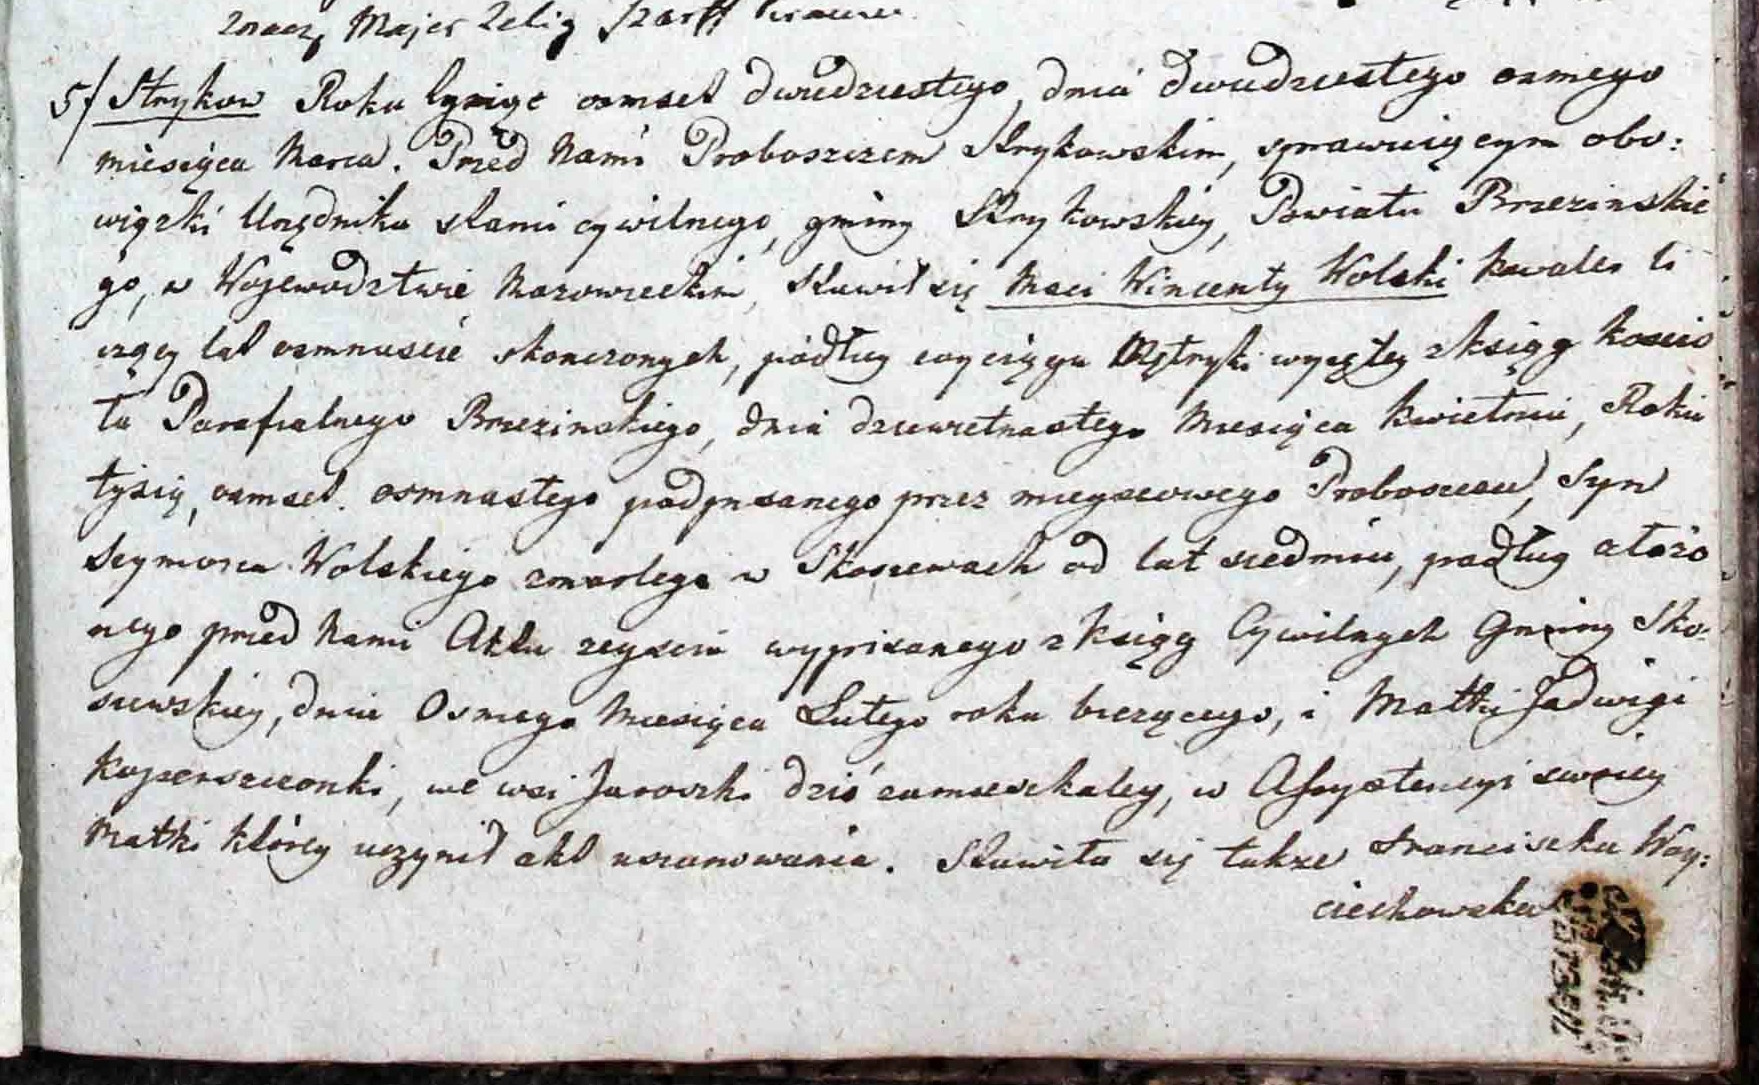 znacz, Majer Zelig Szarff
5/ Strykow Roku tysiąc osmset dwudziestego, dnia dwudziestego osmego
miesiąca Marca. Przed Nami Proboszczem Strykowskim, sprawuiącym obo:
wiązki Urzędnika stanu cywilnego, gminy Strykowskiey, Powiatu Brzezinskie
go, w Wojewodztwie Mazowieckim, Stawił się Maci Wincenty Wolski kawaler li
czący lat osmnascie skonczonych, podług wyciągu Metryki wyiętey z ksiąg kościo
ła Parafialnego Brzezinskiego, dnia dziewietnastego Miesiąca kwietnia, Roku
tysią, osmset. osmnastego podpisanego przez mieyscowego Proboszcza, Syn
Szymona Wolskiego zmarłego w Skoszewach od lat siedmiu, podług złożo
nego przed Nami Aktu zeyscia wypisanego z ksiąg Cywilnych Gminy Sko:
szewskiey, dnia Osmego Miesiąca Lutego roku bieżącego, i Matki Jadwigi
we wsi Jaroszki dziś zamieszkałey, w Assystencyi swoiey
Matki którey uczynił akt uszanowania. Stawiła się także Franciszka Woy:
ciechowska